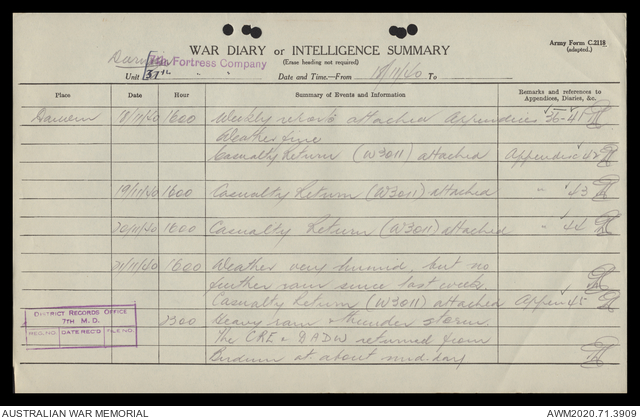 WAR DIARY or INTELLIGENCE SUMMARY
(Erase heading not required)
Army Form C.2118
(adapted.)
Darwin Fortress Company
Unit 37th " "
Date and Time.—From 18/11/40 To
Place Date Hour Summary of Events and Information Remarks and references to Appendices, Diaries, &c.
Darwin 18/11/40 1600 Weekly returns attached Appendices 36-41
Weather fine
Casualty Return (W3011) attached Appendix 42
19/11/40 1600 Casualty Return (W3011) attached " 43
20/11/40 1600 Casualty Return (W3011) attached " 44
21/11/40 1600 Weather very humid but no
further rain since last week.
Casualty Return (W3011) attached Appen 45
2300 Heavy rain & thunder storm.
The CRE & DADW returned from
Birdum at about mid-day
DISTRICT RECORDS OFFICE
7TH M.D.
REG. NO. DATE REC'D FILE NO.
AUSTRALIAN WAR MEMORIAL
AWM2020.71.3909